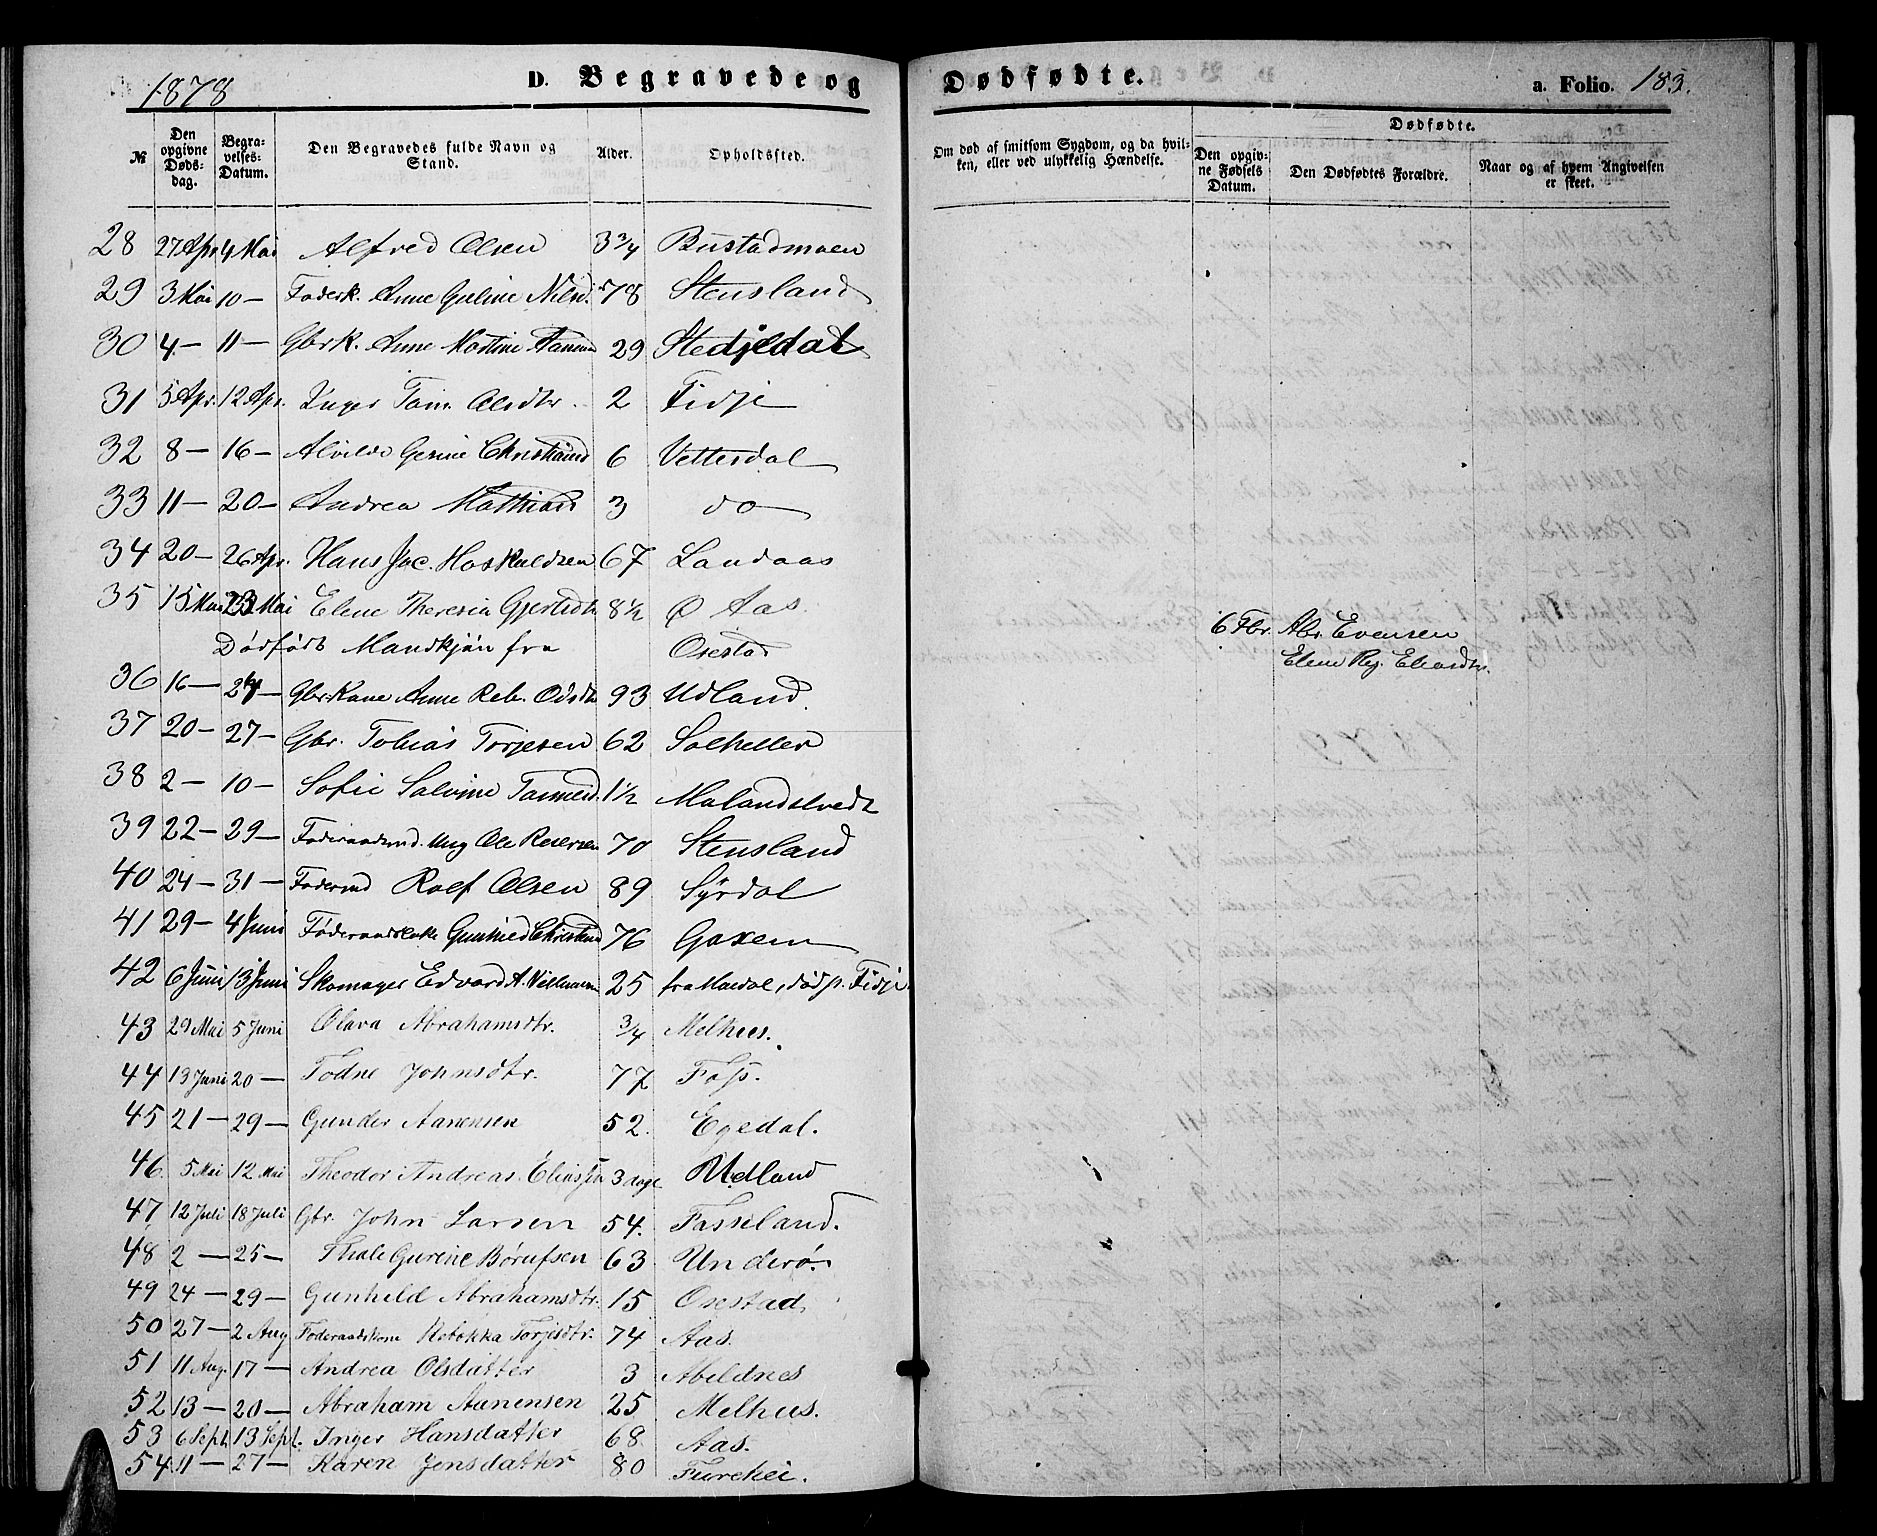 1878 D. Begravede og Dødfødte. a. Folio. 183.
№ Den opgivne Døds-dag. Begra-velses-Datum. Den Begravedes fulde Navn og Stand. Alder. Opholdssted. Om død af smitsom Sygdom, og da hvil-ken, eller ved ulykkelig Hændelse. Dødfødte. Den opgiv-ne Fødsels Datum. Den Dødfødtes Forældre. Naar og af hvem Angivelsen er skeet.
28 27 Apr 4 Mai Alfred Olsen 3 3/4 Bustadmoen
29 3 Mai 10 — Føderk. Anne Guline Nilsd. 78 Stensland
30 4 — 11 — Gbrk. Anne Martine 29 Stedjedal
31 5 Apr. 12 Apr. Inger Tom. Olsdtr. 2 Fidje
32 8 — 16 — Alvilde Gesine Christiansd 6 Vetterdal
33 11 — 20 — Andrea Mathiasd 3 do
34 20 — 26 Apr. Hans Jac. Hoskuldsen 67 Landaas
35 15 Mai 23 Mai Elene Theresia Gjertsdtr 8 1/2 Ø Aas
Dødfødt Mandkjøn fra Osestad 6 Fbr. Abr. Evensen
Elene Reg. Eliasdtr.
36 16 — 24 — Gbrkone Anne Reb. Odsdtr 93 Udland
37 20 — 27 — Gbr. Tobias Torjesen 62 Solheller
38 2 — 10 — Sofie Salvine Tønnesd. 1 1/2 Molandslvedt
39 22 — 29 — Føderaadsmd. Ung Ole Reiersen 70 Stensland
40 24 — 31 — Fødermd Rolf Olsen 89 Syrdal
41 29 — 4 Juni Føderaadsenke Gunhild Christensd 76 Goxem
42 6 Juni 13 Juni Skomager Edvard A. 25 fra Mordal, død p. Fidje
43 29 Mai 5 Juni Olava Abrahamsdtr. 3/4 Melhus.
44 13 Juni 20 — Todne Johnsdtr. 77 Foss.
45 21 — 29 — Gunder Aanensen 52. Egedal.
46. 5 Mai 12 Mai Theodor Andreas Eliassen 3 dage Udland
47 12 Juli 18 Juli Gbr. John Larsen 54. Fasseland.
48 2 — 25 — Thale Gurine Børufsen 63 Underø.
49 24 — 29 — Gunhild Abrahamsdtr. 15 Osestad
50 27 — 2 Aug Føderaadskone Rebekka Torjesdtr. 74 Aas.
51 11 Aug. 17 — Andrea Olsdatter 3 Abeldnes
52 13 — 20 — Abraham Aanensen 25 Melhus.
53 6 Sept. 13 Sept. Inger Hansdatter 68 Aas.
54 11 — 27 — Karen Jensdatter 80 Furehei.